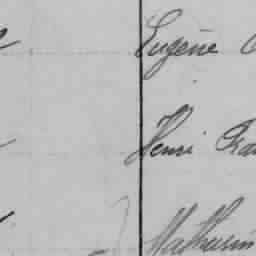 Eugène
Henri
Mathurin